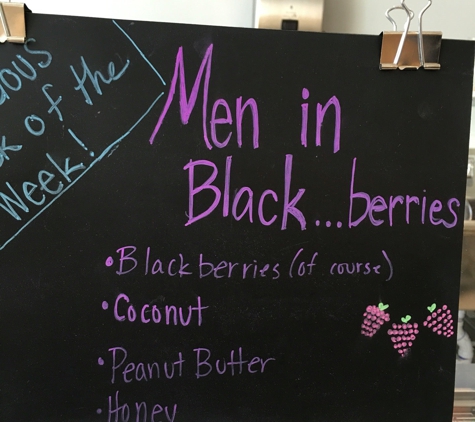 of the
Week!
Men in
Black...berries
• Blackberries (of course)
• Coconut
• Peanut Butter
• Honey